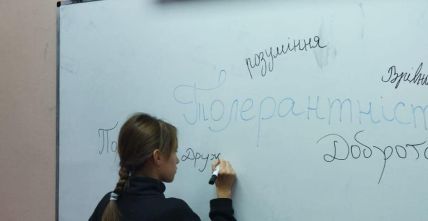 розуміння
Врівн
Толерантніст
По
Друж
Доброта